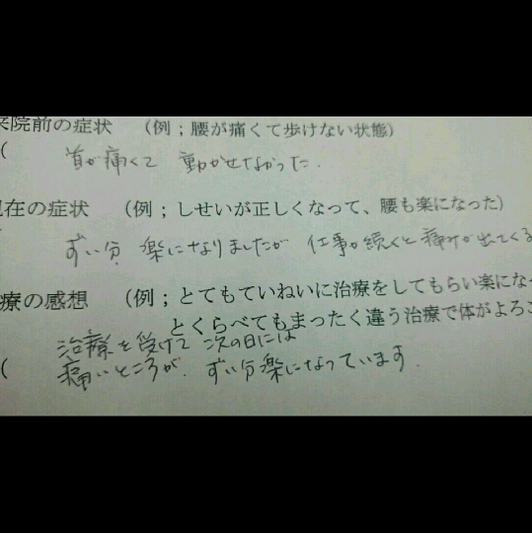 来院前の症状 (例；腰が痛くて歩けない状態)
( 首が痛くて 動かせなかった.
現在の症状 (例；しせいが正しくなって、腰も楽になった)
ずい分 楽になりましたが 仕事が続くと痛みが出てくる
療の感想 (例；とてもていねいに治療をしてもらい楽にな
とくらべてもまったく違う治療で体がよろこ
治療を受けて 次の日には
( 痛いところが. ずい分楽になっています.